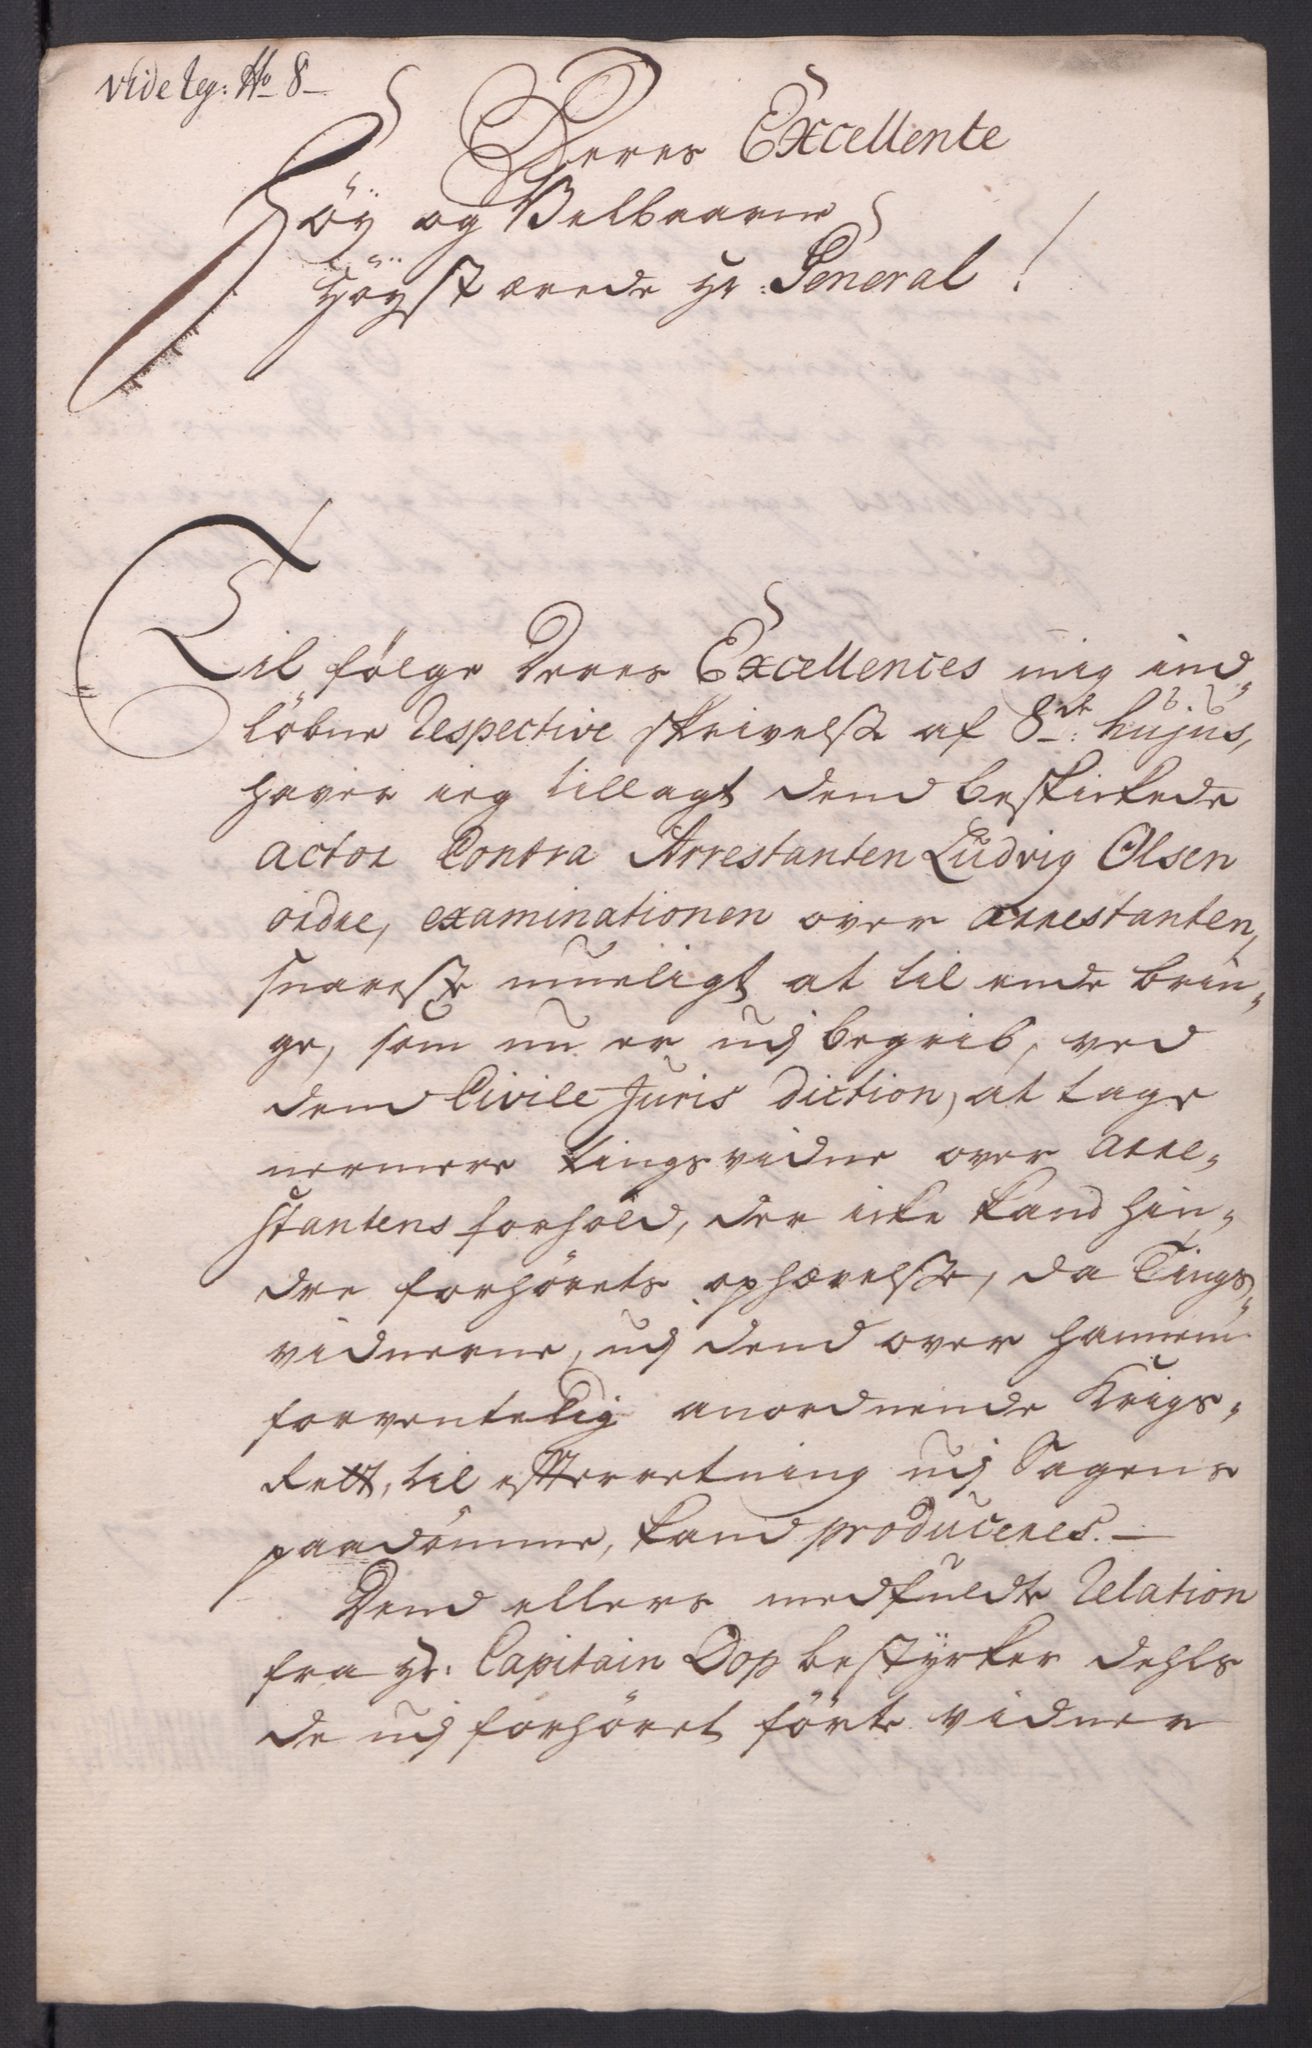 vide leg: No 8
Deres Excellente
Høy og Velbaarne
Høystærede Hr: General!
Til følge Deres Excellences mig ind„
løbne Respective skrivelse af 8de: hujus,
haver ieg tillagt dend beskikede
actor Contra Arrestanten Ludvig Olsen
ordre, examinationen over arrestanten,
snareste mueligt at til ende brin„
ge, som nu er udj begreb, ved
dend Civile Juris diction, at tage
nermere tingsvidne over arre„
stantens forhold, der icke kand hin„
dre forhørets ophævelse, da Tings„
vidnerne, udj dend over hannem
forventelig anordnende Krigs„
Rett, til efterretning udj Sagens
paadømme, kand produceres.—
Dend ellers medfuldte Relation
fra Hr: Capitain Dop bestyrker dehls
de udj forhøret førte vidner